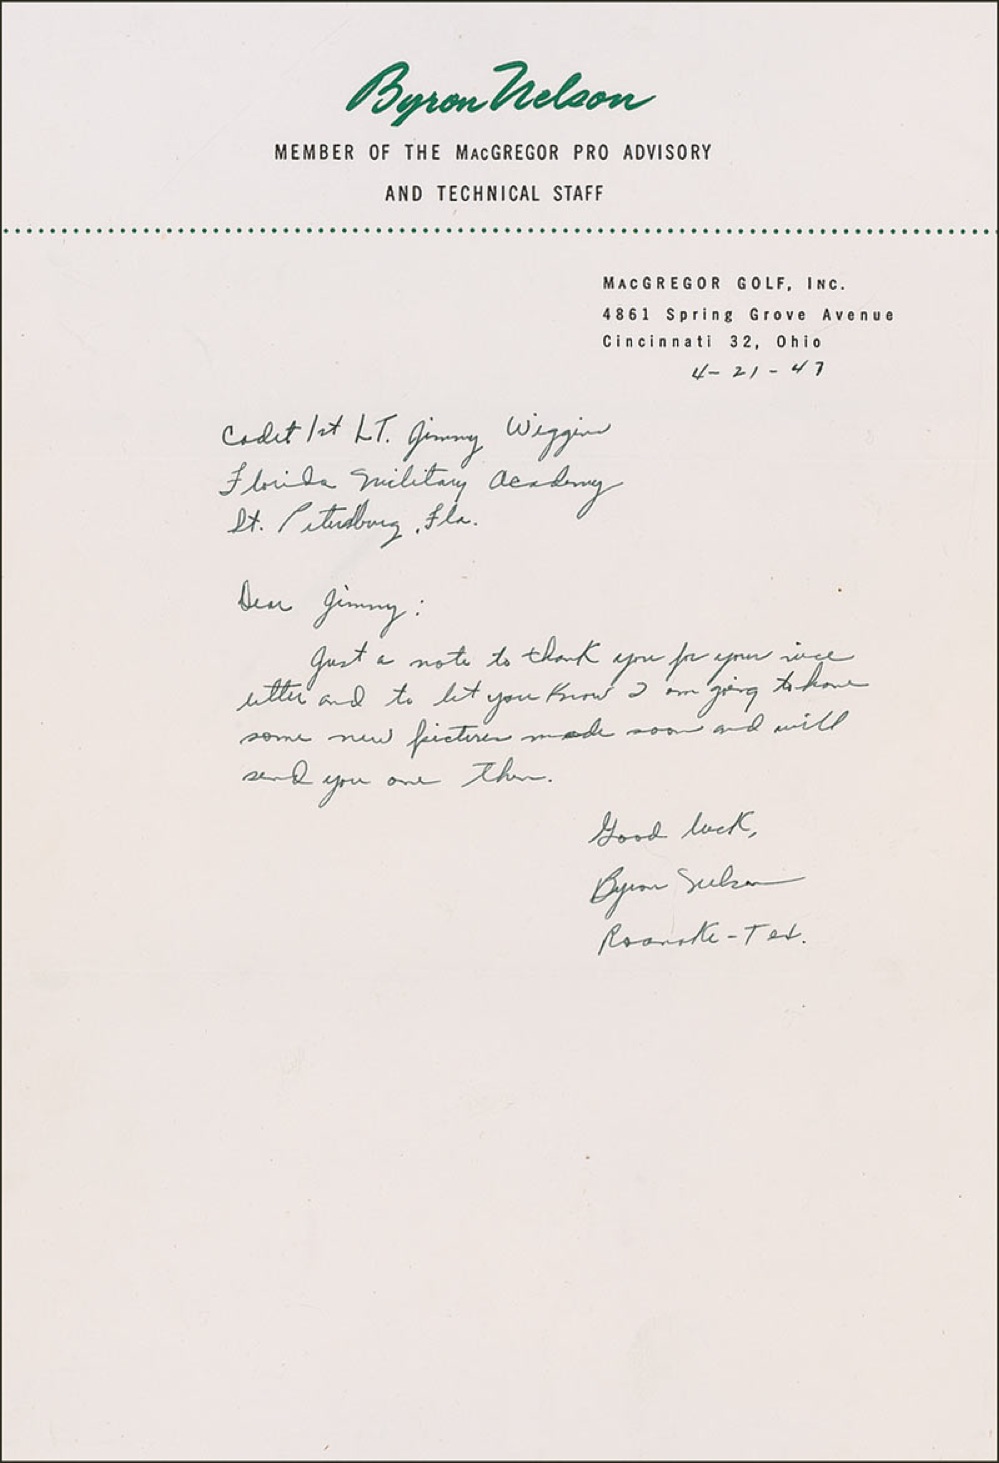 Byron Nelson
MEMBER OF THE MACGREGOR PRO ADVISORY
AND TECHNICAL STAFF
MACGREGOR GOLF, INC.
4861 Spring Grove Avenue
Cincinnati 32, Ohio
4-21-47
Cadet 1st LT. Jimmy Wiggins
Florida Military Academy
St. Petersburg, Fla.
Dear Jimmy:
Just a note to thank you for your nice
letter and to let you know I am going to have
some new pictures made soon and will
send you one then.
Good luck,
Byron Nelson
Roanoke-Tex.